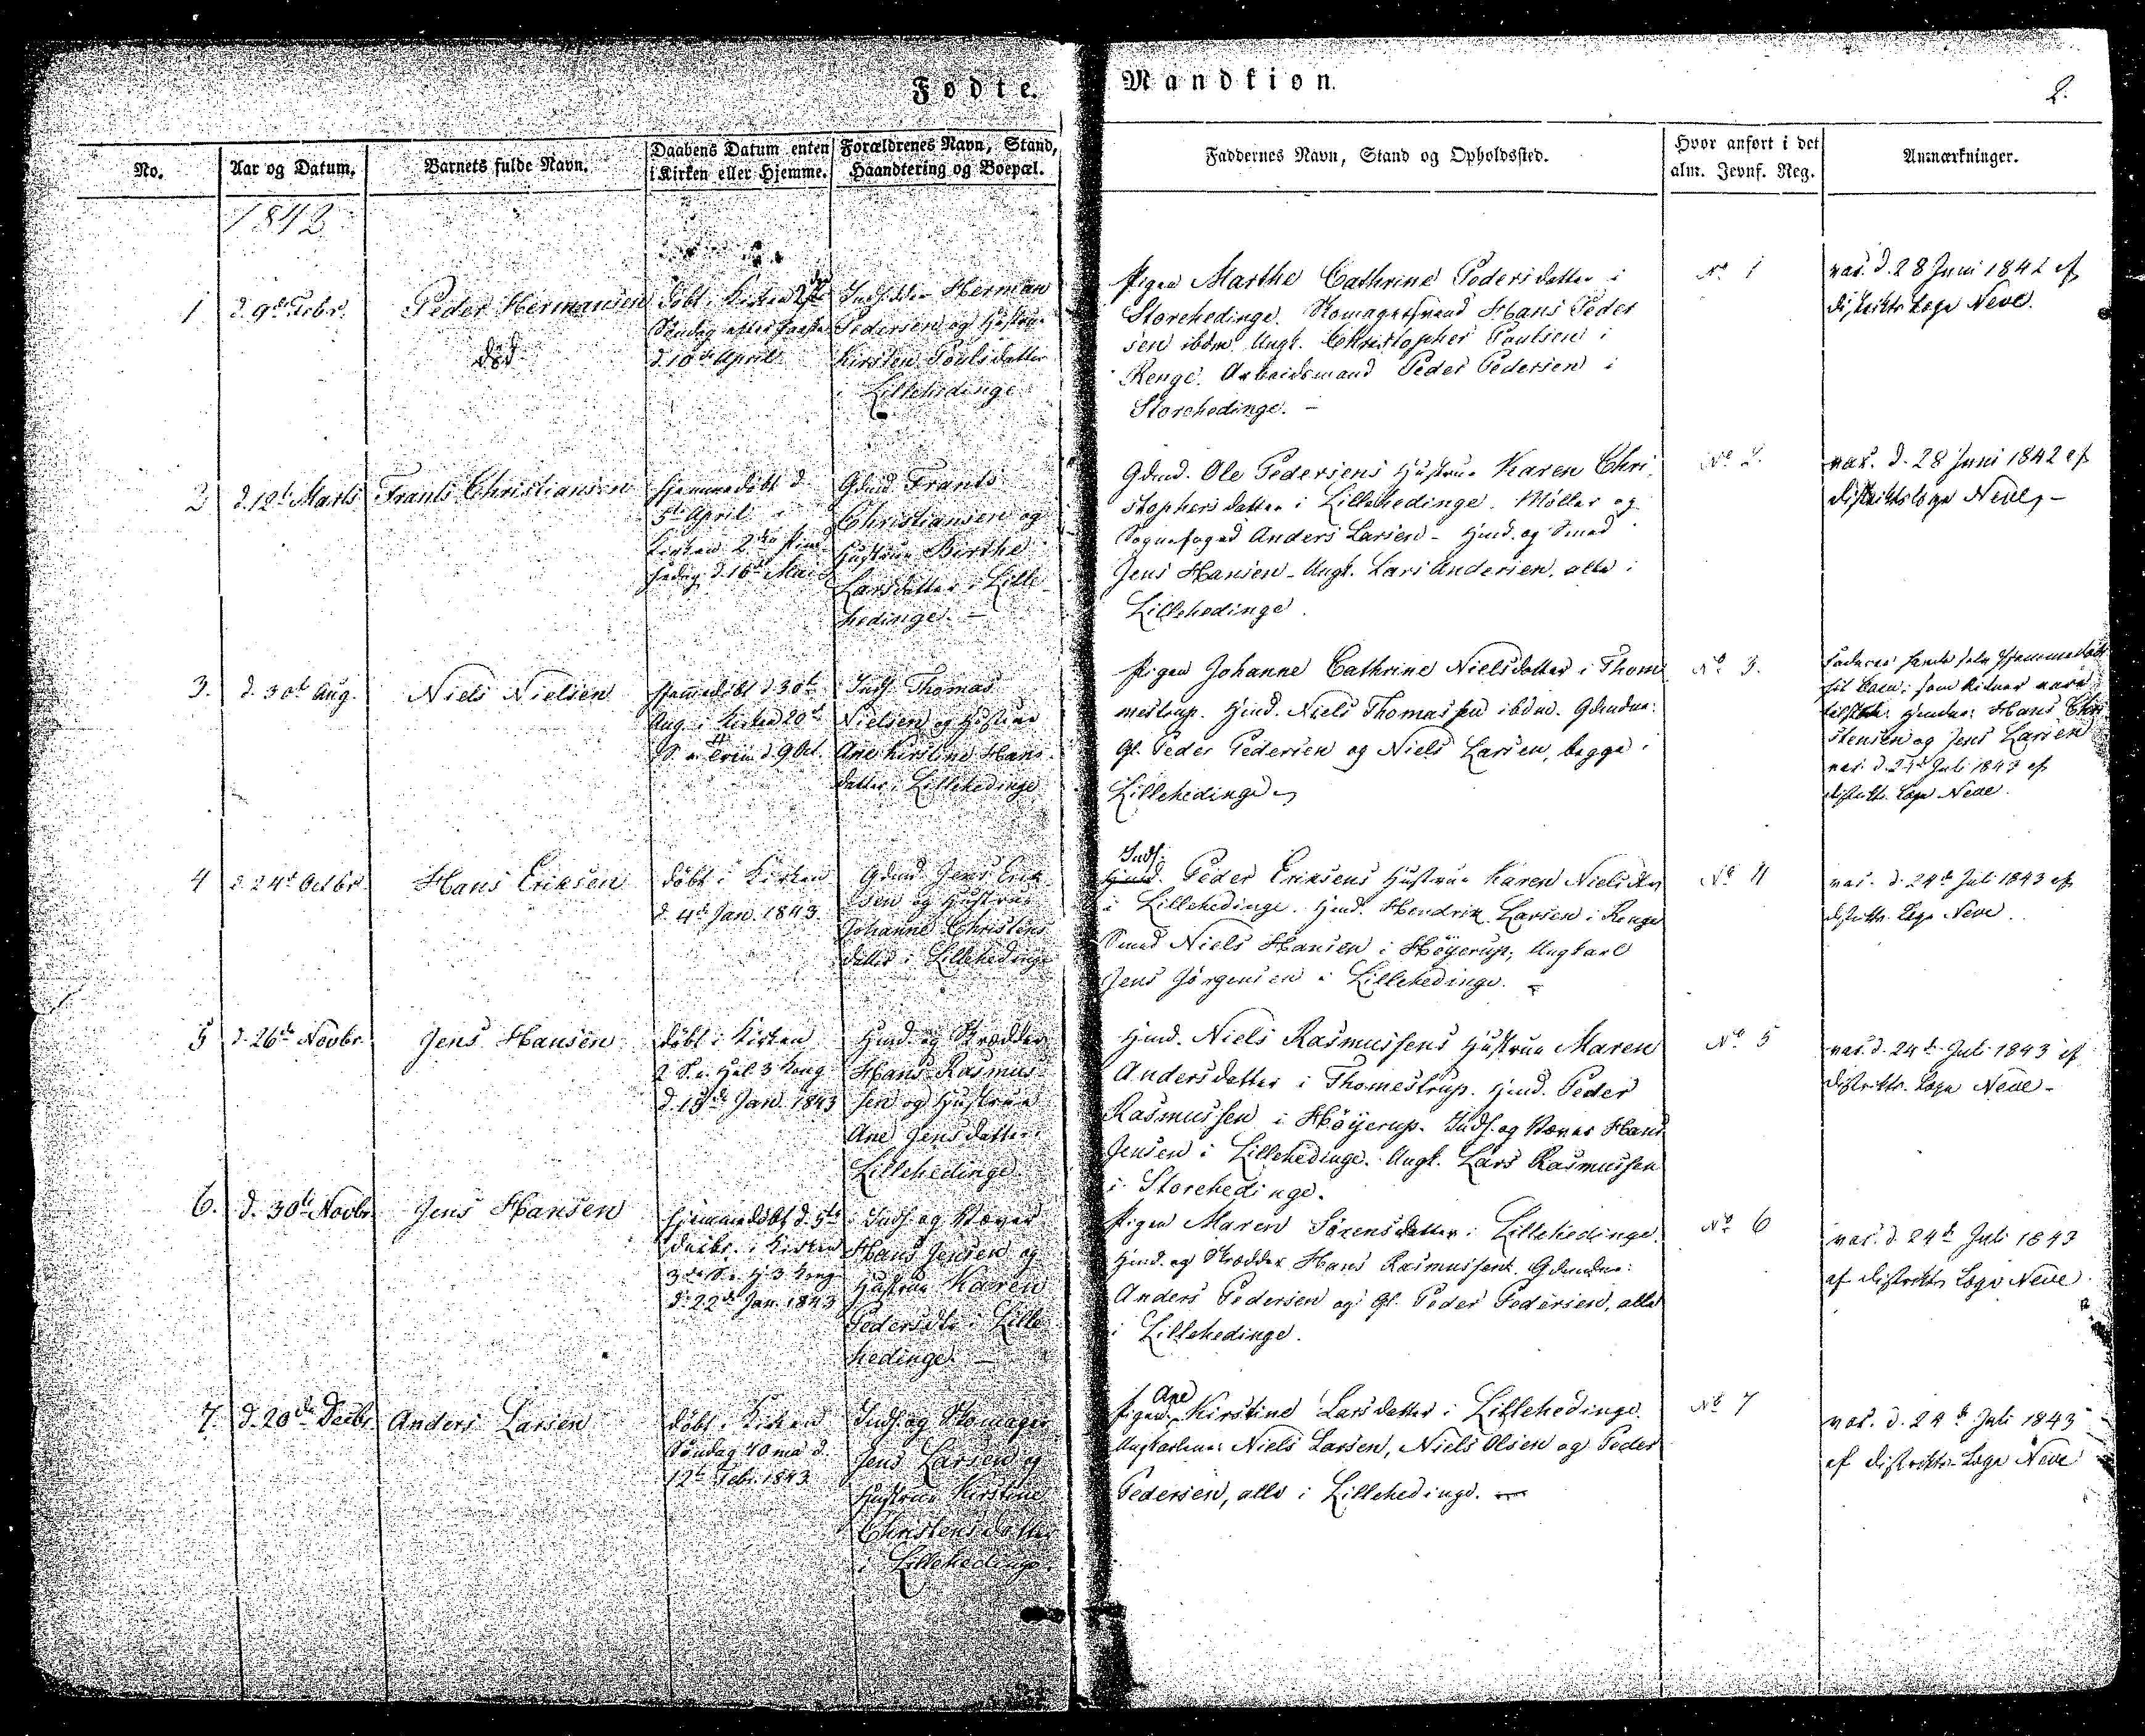 Fødte.
Mandkiøn.
2.
No.
Aar og Datum.
Barnets fulde Navn.
Daabens Datum enten
i Kirken eller Hjemme.
Forældrenes Navn, Stand,
Haandtering og Boepæl.
Faddernes Navn, Stand og Opholdssted.
Hvor anført i det
alm. Jevnf. Reg.
Anmærkninger.
1842
1
d. 9de Febr.
Peder Hermansen
død
døbt i Kirken 2den
Søndag efter Paaske
d. 10de April
Inds. Herman
Pedersen og Hustrue
Kirsten Poulsdatter
i Lillehedinge
Pigen Marthe Cathrine Pedersdatter i
Storehedinge. Skomagersvend Hans Peder
sen ibdm. Ungk. Christopher Poulsen i
Renge. Arbeidsmand Peder Pedersen i
Storehedinge. -
No 1
vac. d. 28 Juni 1842 af
Distrikts Læge Neve.
2
d. 12t Marts
Frants Christiansen
hjemmedøbt d.
5te April i
Kirken 2den Pind
sedag d. 16de Mai
Gdmd Frants
Christiansen og
Hustrue Birthe
Larsdatter i Lille-
hedinge. -
Gdmd. Ole Pedersens Hustrue Karen Chri-
stophersdatter i Lillehedinge. Møller og
Sognefoged Anders Larsen - Hmd. og Smed
Jens Hansen - Ungk. Lars Andersen, alle i
Lillehedinge.
No 2.
vac. d. 28 Juni 1842 af
Distriktslæge Neve, -
3.
d. 30t Aug.
Niels Nielsen
hjemmedøbt d 30t
Aug. i Kirken 20d
S. a. Trin. d. 9 Oct.
Inds. Thomas
Nielsen og Hustrue
Ane Kirstine Hans-
datter i Lillehedinge
Pigen Johanne Cathrine Nielsdatter i Thom
mestrup. Hmd. Niels Thomassen ibdm. Gdmdne:
Gl. Peder Pedersen og Niels Larsen, begge i
Lillehedinge
No 3.
Faderen havde selv hjemmedøbt
sit Barn; som Vidner vare
tilstede Hmdne: Hans Chri
stensen og Jens Larsen
vac. d. 24de Juli 1843 af
Distrikts Læge Neve.
4
d. 24t Octbr.
Hans Eriksen
døbt i Kirken
d. 4de Jan. 1843.
Gdmd Jens Erik
sen og Hustrue
Johanne Christens
datter i Lillehedinge
Inds.
Hmd. Peder Eriksens Hustrue Karen Nielsdtr
i Lillehedinge. Hmd. Hendrik Larsen i Renge
Smed Niels Hansen i Høyerup, Ungkarl
Jens Jørgensen i Lillehedinge.
No 4
vac. d. 24de Juli 1843 af
Distrikts Læge Neve.
5
d. 26de Novbr.
Jens Hansen
døbt i Kirken
2 S. a. Hel. 3 Kong.
d. 15de Jan. 1843
Hmd. og Skrædder
Hans Rasmus
sen og Hustrue
Ane Jensdatter i
Lillehedinge
Hmd. Niels Rasmussens Hustrue Maren
Andersdatter i Thomestrup. Hmd. Peder
Rasmussen i Høyerup. Inds. og Væver Hans
Jensen i Lillehedinge. Ungk. Lars Rasmussen
i Storehedinge.
No 5
vac. d. 24de Juli 1843 af
Distrikts. Læge Neve -
6.
d. 30te Novbr.
Jens Hansen
hjemmedøbt d. 5te
Decbr. i Kirken
3die S. a. H. 3 Kong.
d. 22de Jan. 1843
Inds. og Væver
Hans Jensen og
Hustrue Karen
Pedersdtr i Lille
hedinge. -
Pigen Maren Sørensdatter i Lillehedinge.
Hmd. og Skrædder Hans Rasmussen. Gdmdne:
Anders Pedersen og Gl. Peder Pedersen, alle
i Lillehedinge.
No 6
vac. d. 24de Juli 1843
af Distrikts Læge Neve.
7.
d. 20de Decbr
Anders Larsen
døbt i Kirken
Søndag 70ma d.
12te Febr. 1843
Inds. og Skomager
Jens Larsen og
Hustrue Kirstine
Christensdatter
i Lillehedinge.
Ane
Pigen Kirstine Larsdatter i Lillehedinge.
Ungkarlene Niels Larsen, Niels Olsen og Peder
Pedersen, alle i Lillehedinge.
No 7
vac. d. 24de Juli 1843
af Distrikts-Læge Neve